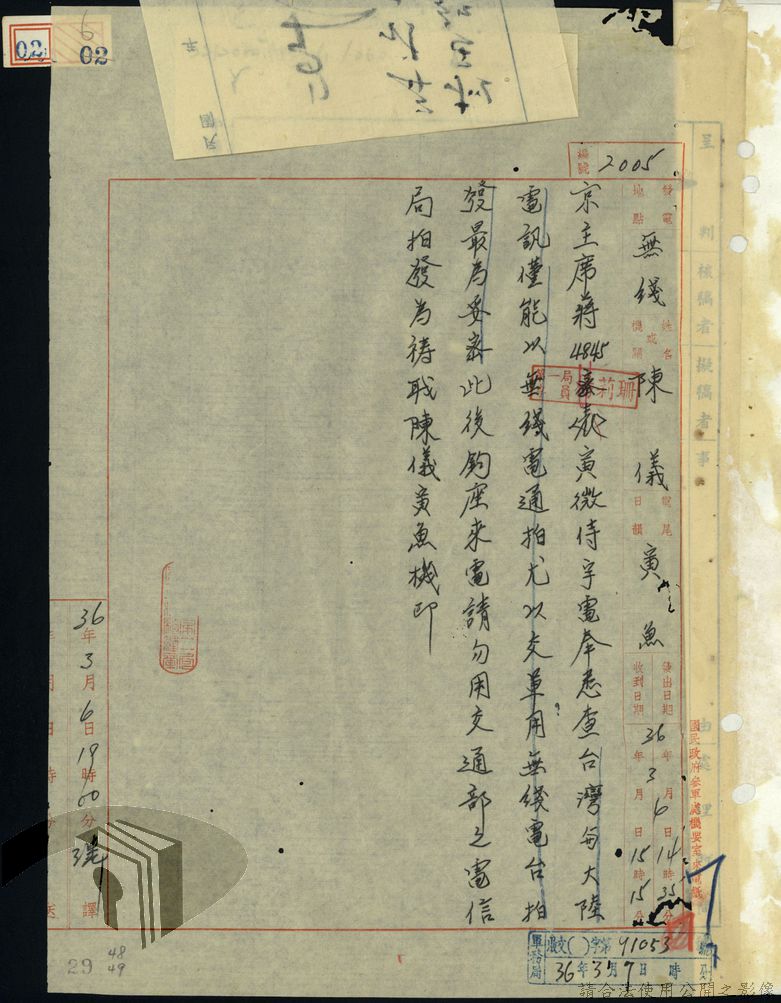 02
6
02
編號 2005
發電地點 無綫
姓名或機關 陳儀
電尾日韻 寅魚
發出日期 36年3月6日14時35分
收到日期 年 月 日15時15分
京主席蔣4845 寅微侍宇電奉悉查台灣與大陸
電訊僅能以無綫電通拍尤以交軍用無綫電台拍
發最為妥密此後鈞座來電請勿用交通部之電信
局拍發為禱職陳儀寅魚機印
第一局員
珊莉
36年3月6日19時00分 譯
國民政府參軍處機要室來電紙
呈 判 核稿者 擬稿者 事 由 處理
軍務局
收文( )字第91053
36年3月7日 時
29
48
49
請合法使用公開之影像